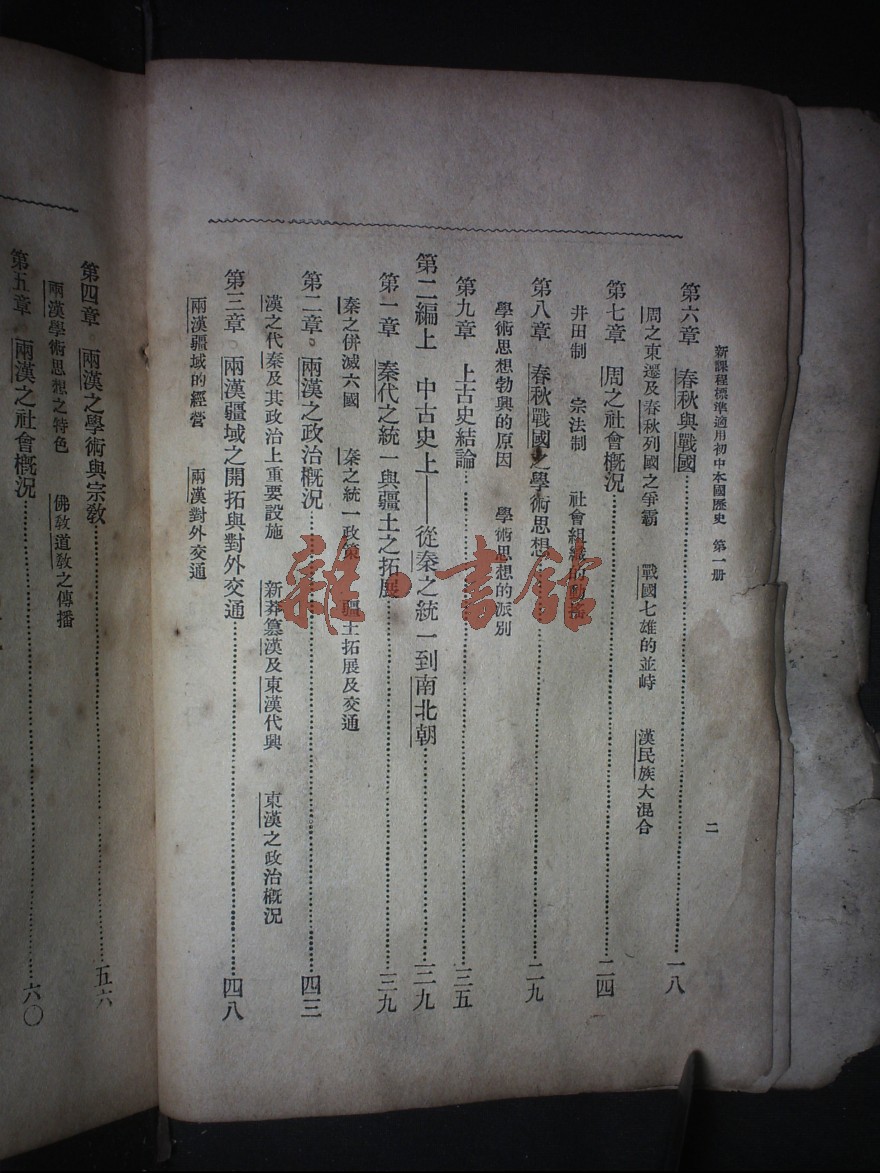 新課程標準適用初中本國歷史　第一册
二
第六章　春秋與戰國……一八
周之東遷及春秋列國之爭霸　戰國七雄的並峙　漢民族大混合
第七章　周之社會概況……二四
井田制　宗法制　社會組織的動搖
第八章　春秋戰國之學術思想……二九
學術思想勃興的原因　學術思想的派別
第九章　上古史結論……三五
第二編上　中古史上——從秦之統一到南北朝……三九
第一章　秦代之統一與疆土之拓展……三九
秦之併滅六國　秦之統一政策　疆土拓展及交通
第二章　兩漢之政治概況……四三
漢之代秦及其政治上重要設施　新莽篡漢及東漢代興　東漢之政治概況
第三章　兩漢疆域之開拓與對外交通……四八
兩漢疆域的經營　兩漢對外交通
第四章　兩漢之學術與宗教……五六
兩漢學術思想之特色　佛教道教之傳播
第五章　兩漢之社會概況……六〇
雜·書館